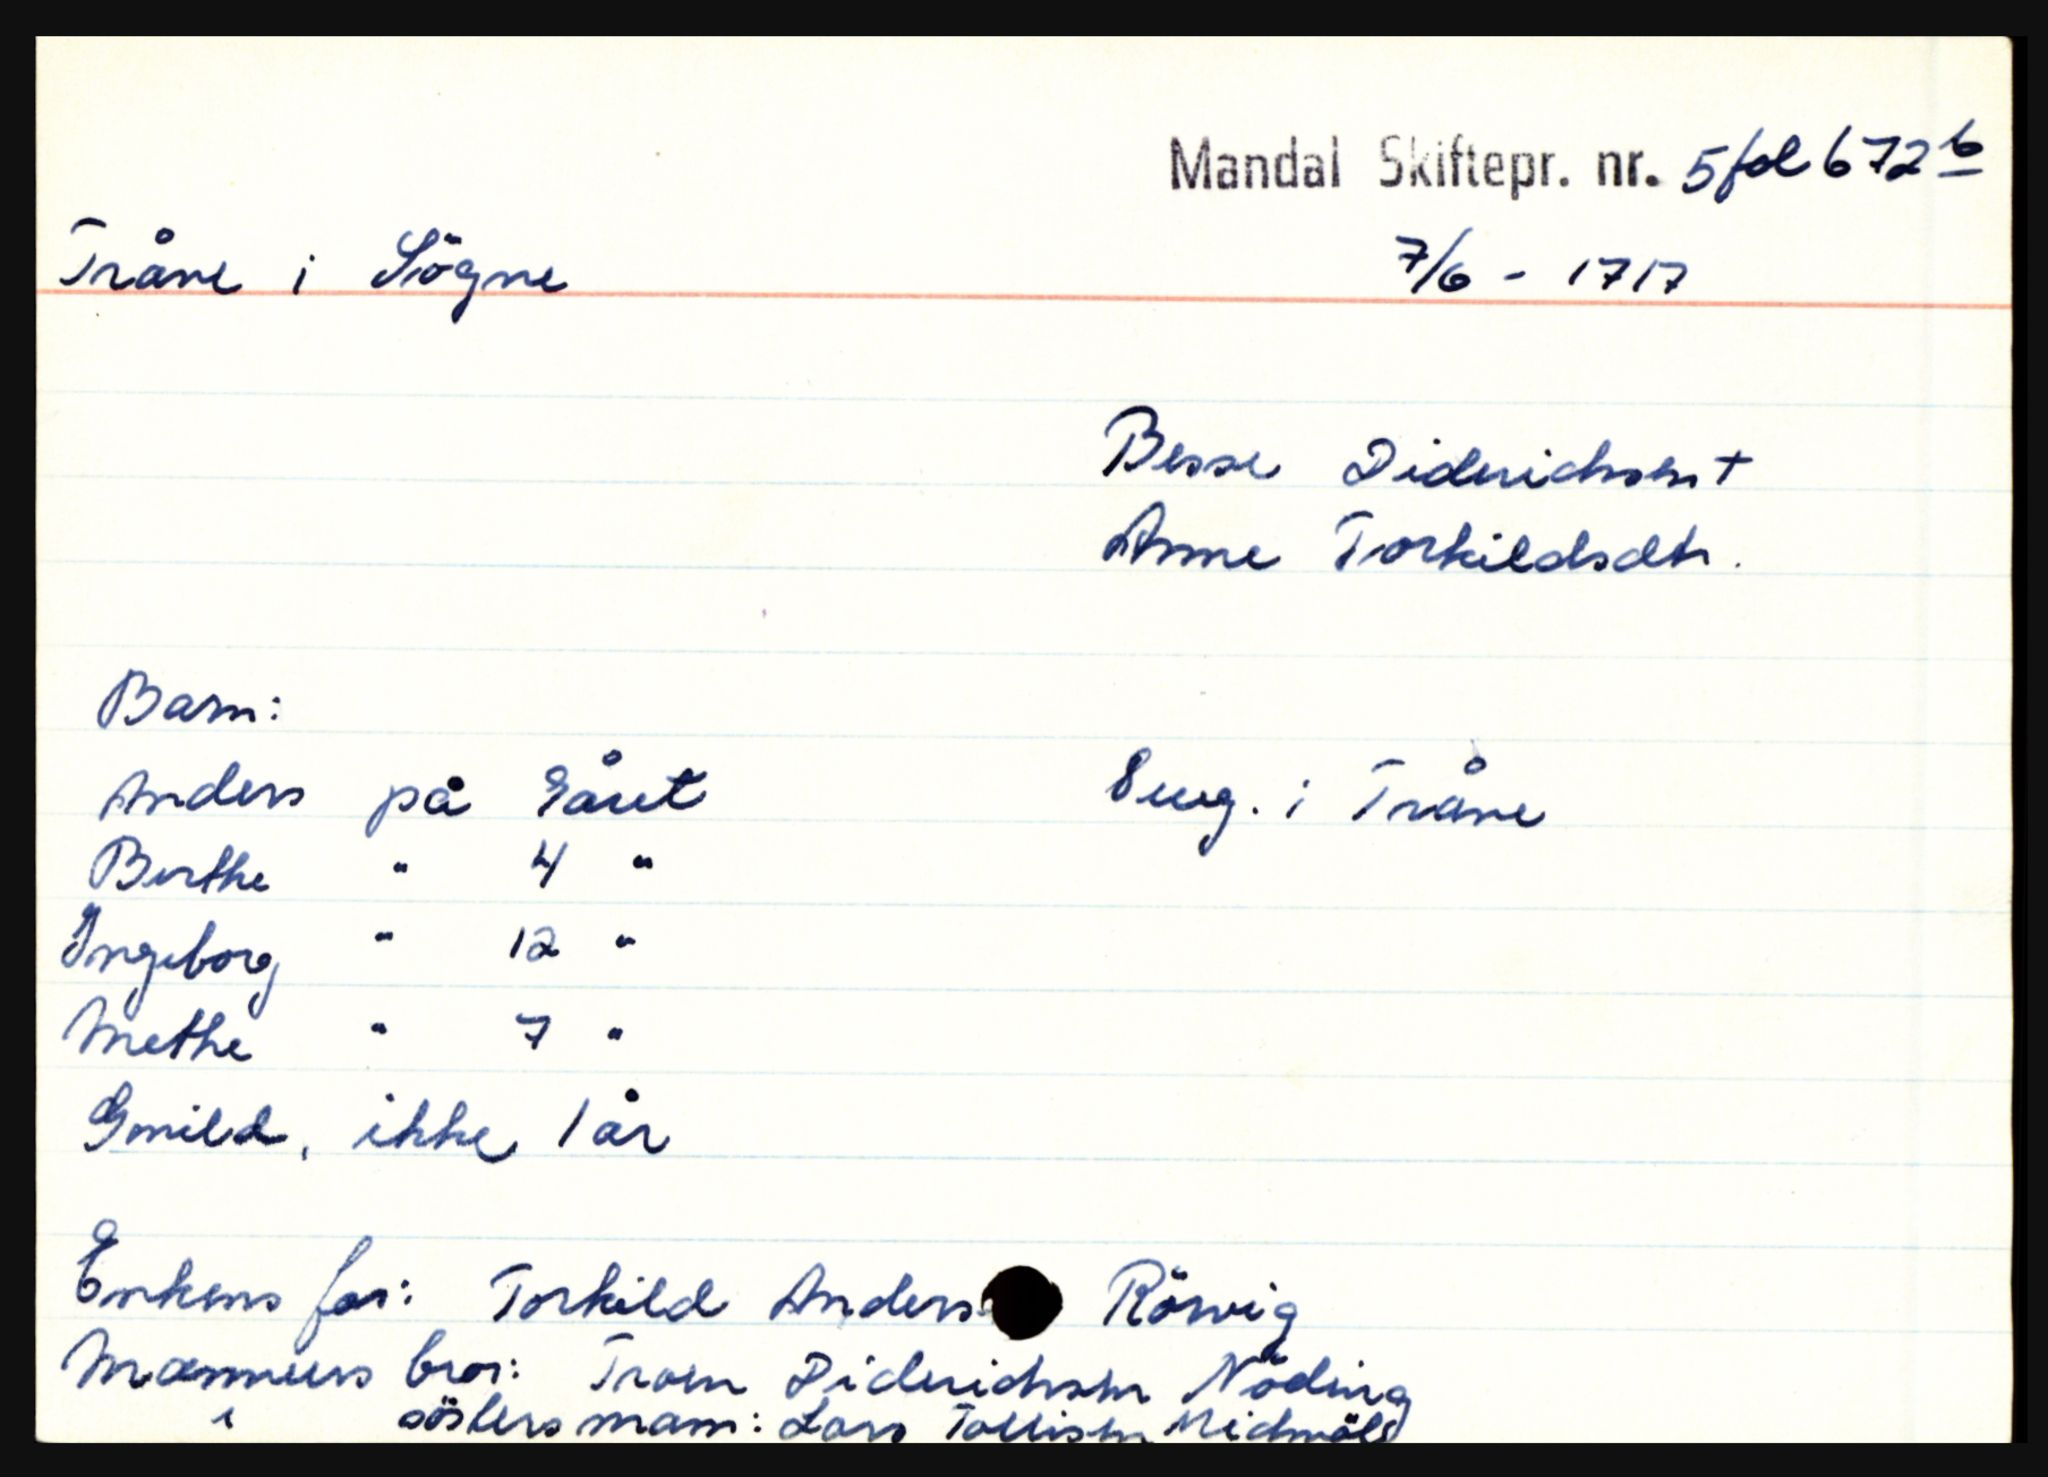 Mandal Skiftepr. nr. 5 fol 672 b
Tråne i Sögne 7/6 - 1717
Besse Diderichsen +
Anne Torkildsdtr.
Barn:
Anders på 9 året 8 eug. i Tråne
Berthe " 4 "
Ingeborg " 12 "
Methe " 7 "
Gunild, ikke 1 år
Enkens far: Torkild Anders Rösvig
Mannens bror: Troen Diderichsen Nöding
söstersmann: Lars Tollisen